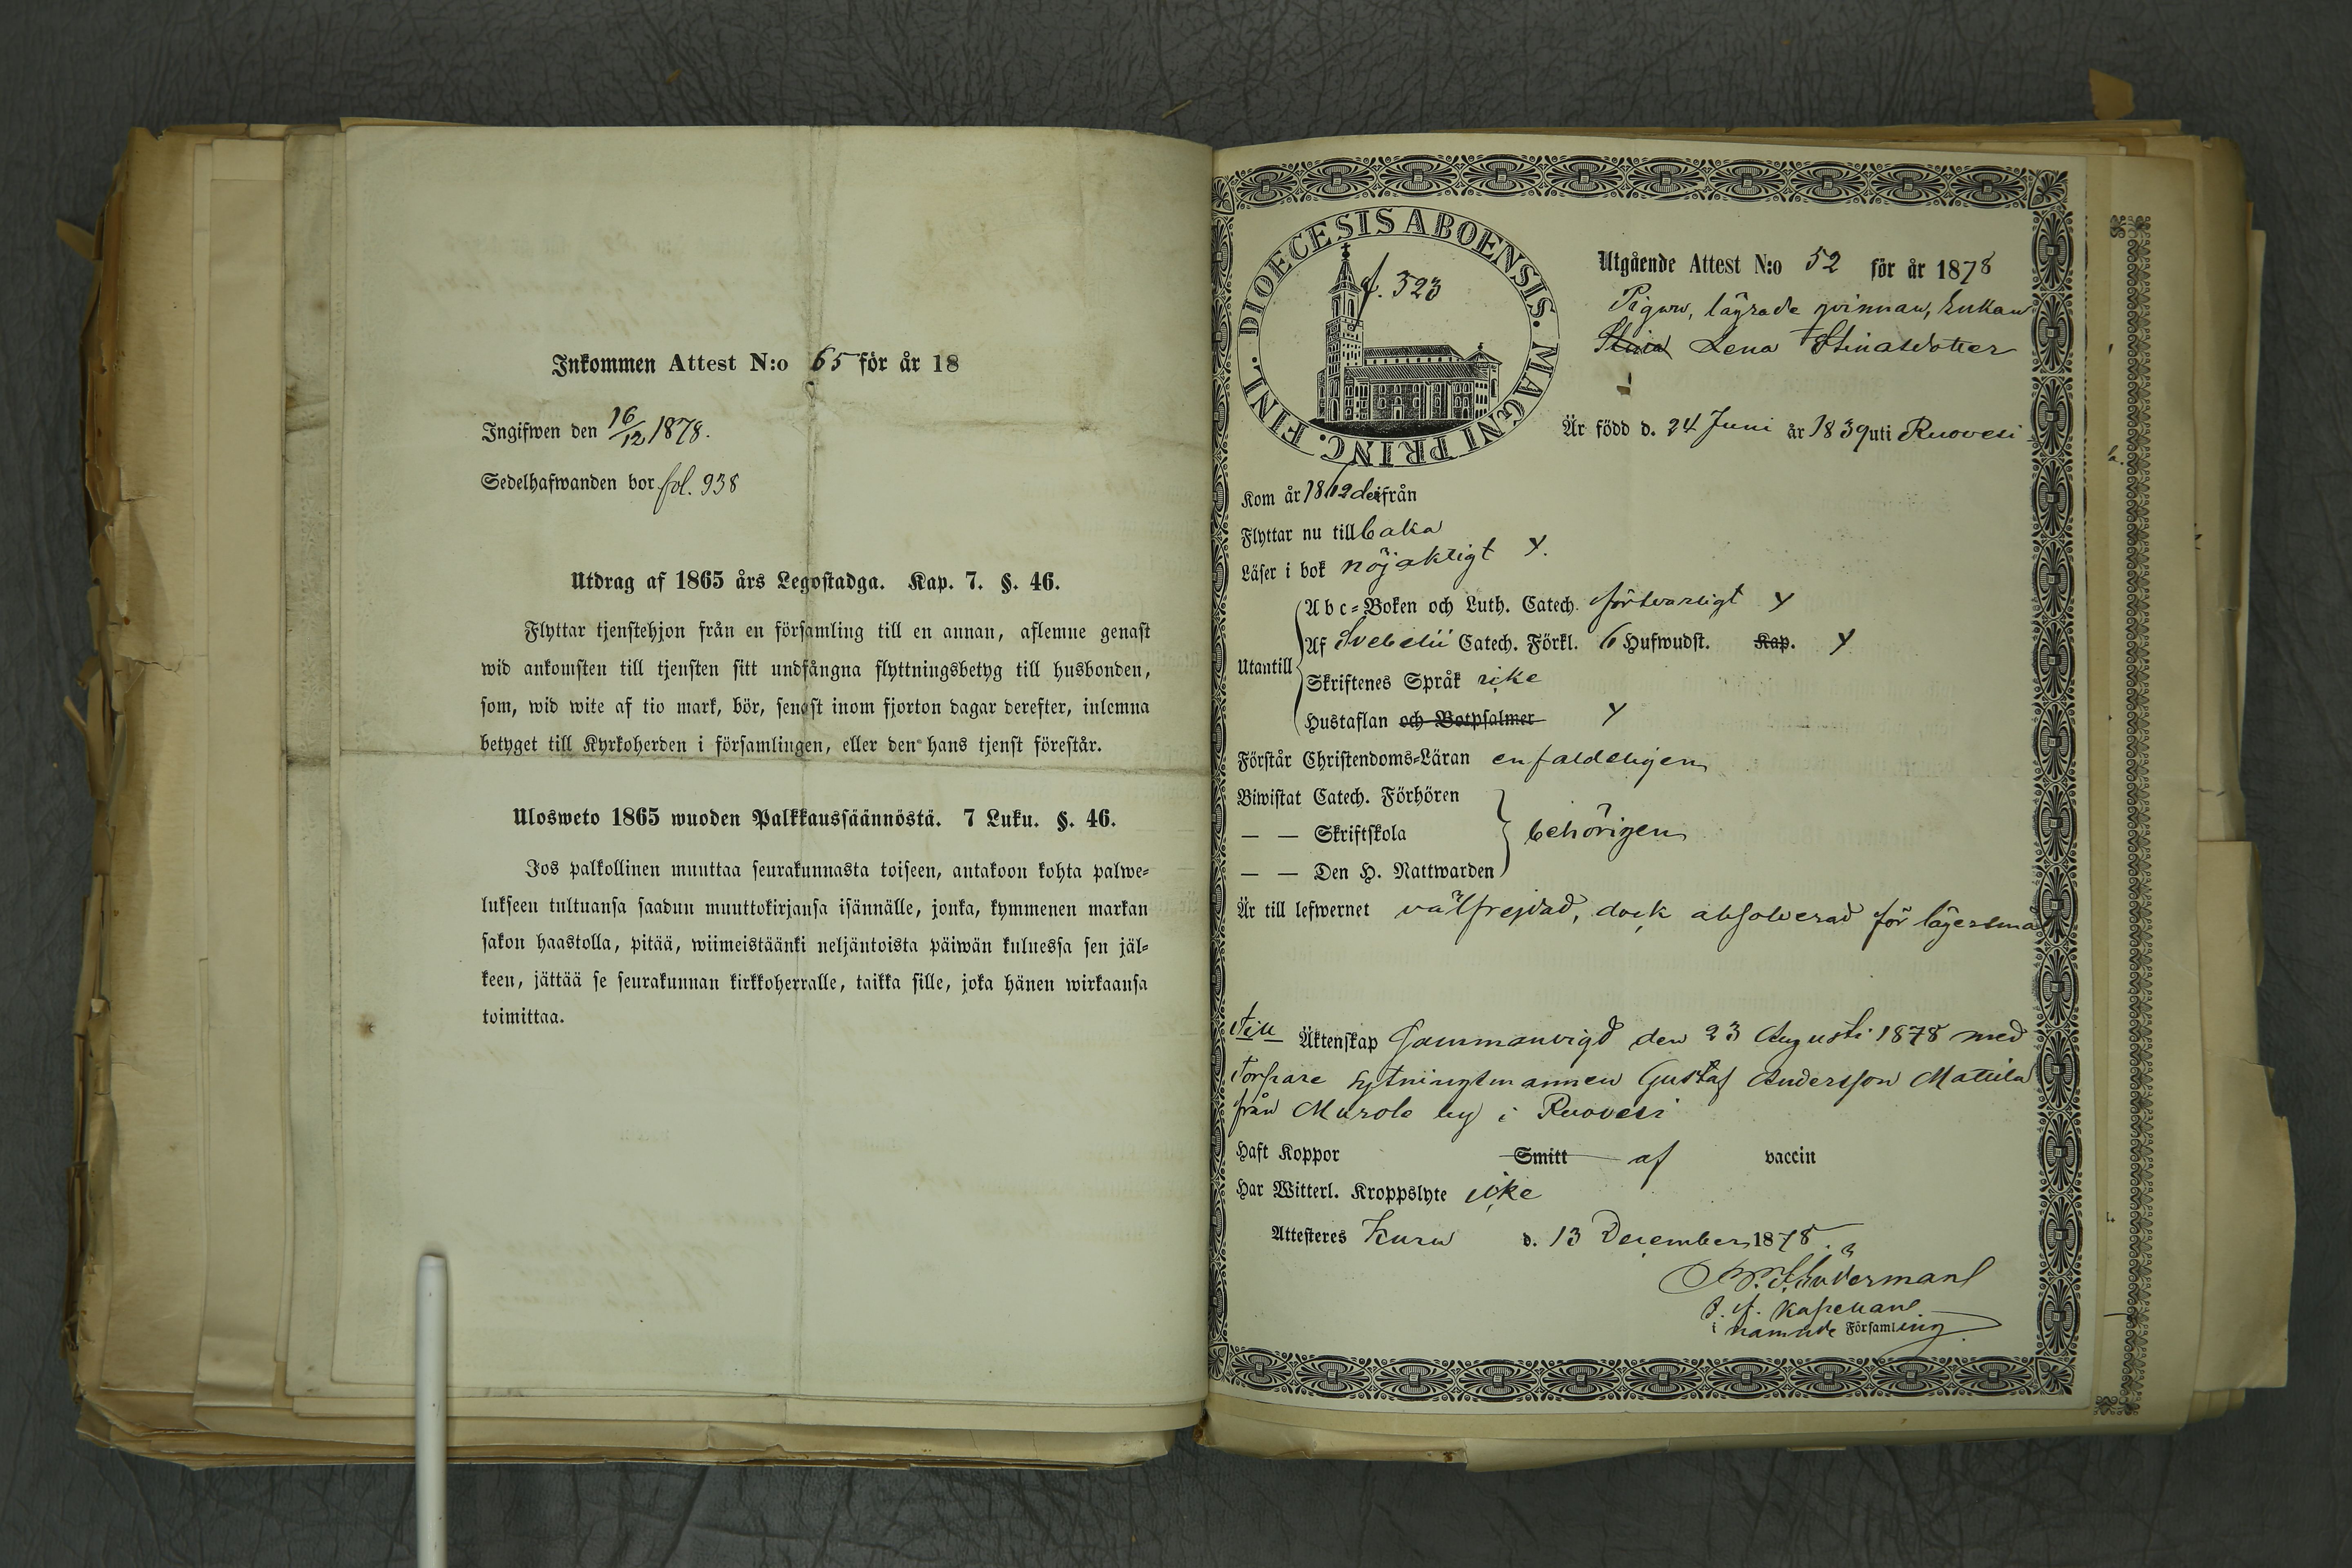 Inkommen Attest N:o 65 för år 18
Ingifwen den 16/12 1878.
Sedelhafwanden bor fol. 938
Utdrag af 1865 års Legostadga. Kap. 7. §. 46.
Flyttar tjenstehjon från en församling till en annan, aflemne genast
wid ankomsten till tjensten sitt undfångna flyttningsbetyg till husbonden,
som, wid wite af tio mark, bör, senast inom fjorton dagar derefter, inlemna
betyget till Kyrkoherden i församlingen, eller den hans tjenst förestår.
Ulosweto 1865 wuoden Palkkaussäännöstä. 7 Luku. §. 46.
Jos palkollinen muuttaa seurakunnasta toiseen, antakoon kohta palwe-
lukseen tultuansa saadun muuttokirjansa isännälle, jonka, kymmenen markan
sakon haastolla, pitää, wiimeistäänki neljäntoista päiwän kuluessa sen jäl-
keen, jättää se seurakunnan kirkkoherralle, taikka sille, joka hänen wirkaansa
toimittaa.
DIOECESIS ABOENSIS. MAGNI PRINC. FINL.
f. 323
Utgående Attest N:o 52 för år 1878
Pigan, lägrade qvinnan, Enkan
Stina Lena Stinasdotter
Är född d. 24 Juni år 1839 uti Ruovesi
Kom år 1862 derifrån
Flyttar nu tillbaka
Läser i bok nöjaktigt Y.
Utantill
Abc-Boken och Luth. Catech. försvarligt Y
Af Svebelii Catech. Förkl. 6 Hufwudst. Kap. Y
Skriftenes Språk icke
Hustaflan och Botpsalmer Y
Förstår Christendoms-Läran enfaldeligen
Biwistat Catech. Förhören
— — Skriftskola behörigen
— — Den H. Nattwarden
Är till lefwernet välfrejdad, dock absolverad för lägersmål
Till Äktenskap Sammanvigd den 23 Augusti 1878 med
Torpare Sytningsmannen Gustaf Andersson Mattila
från Murole by i Ruovesi
Haft Koppor Smitt af vaccin
Har Witterl. Kroppslyte icke
Attesteres Kuru d. 13 December 1878.
Södermanl
t. f. Kapellans
i namnde Församling